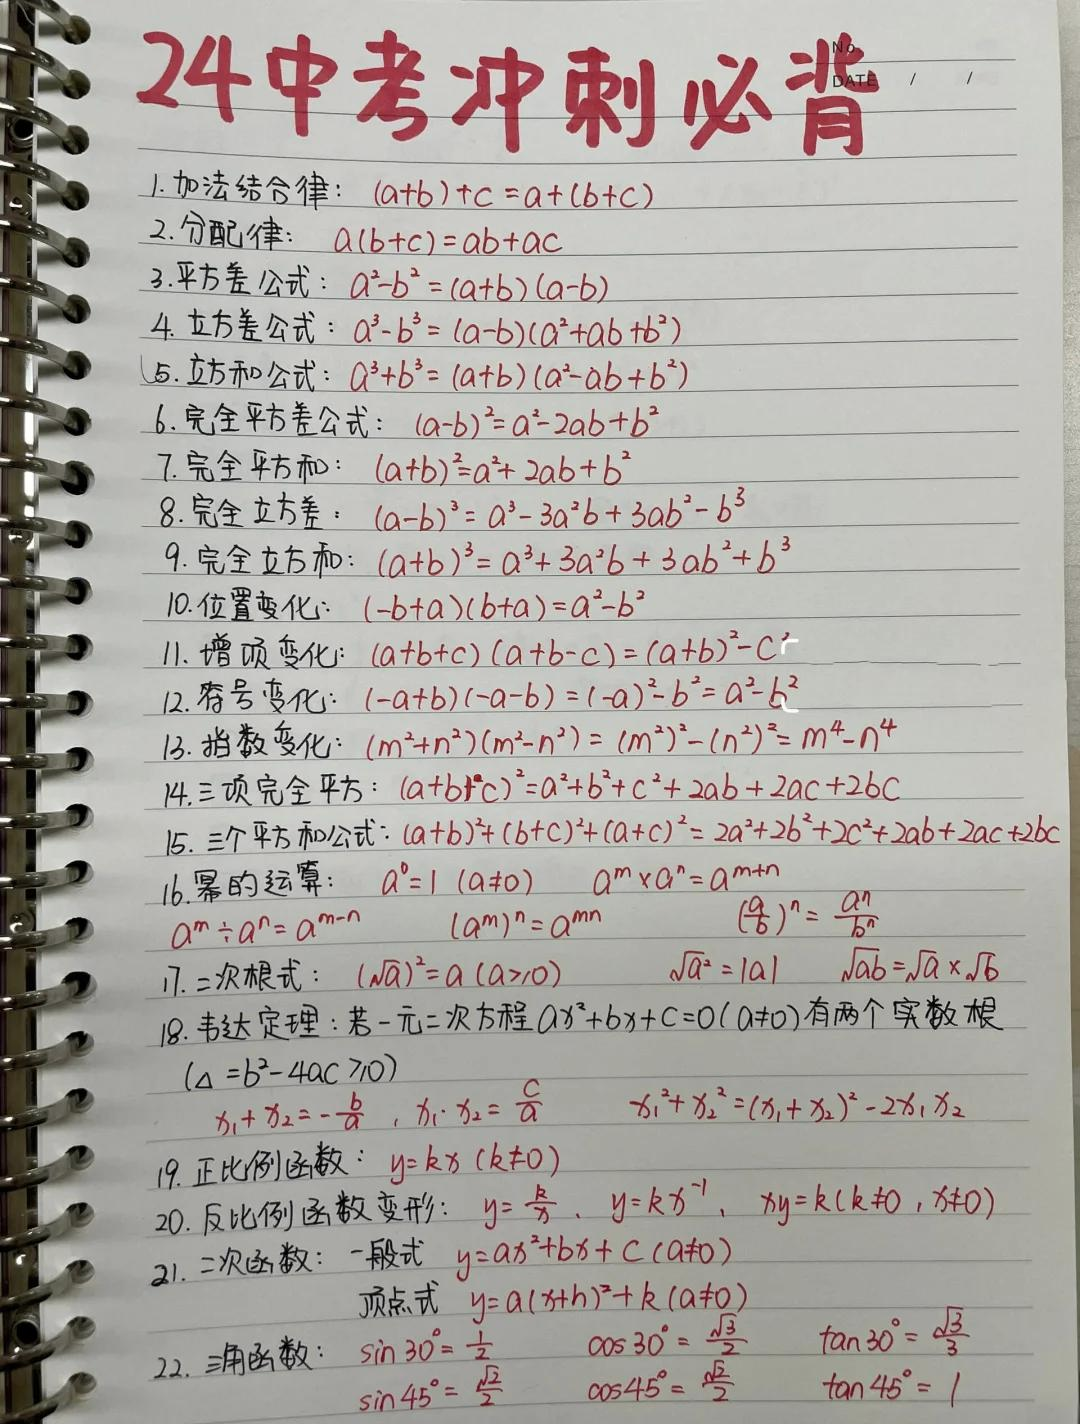 No.
DATE / /
24中考冲刺必背
1.加法结合律: (a+b)+c=a+(b+c)
2.分配律: a(b+c)=ab+ac
3.平方差公式: a²-b²=(a+b)(a-b)
4.立方差公式: a³-b³=(a-b)(a²+ab+b²)
5.立方和公式: a³+b³=(a+b)(a²-ab+b²)
6.完全平方差公式: (a-b)²=a²-2ab+b²
7.完全平方和: (a+b)²=a²+2ab+b²
8.完全立方差: (a-b)³=a³-3a²b+3ab²-b³
9.完全立方和: (a+b)³=a³+3a²b+3ab²+b³
10.位置变化: (-b+a)(b+a)=a²-b²
11.增项变化: (a+b+c)(a+b-c)=(a+b)²-c²
12.符号变化: (-a+b)(-a-b)=(-a)²-b²=a²-b²
13.指数变化: (m²+n²)(m²-n²)=(m²)²-(n²)²=m⁴-n⁴
14.三项完全平方: (a+b+c)²=a²+b²+c²+2ab+2ac+2bc
15.三个平方和公式: (a+b)²+(b+c)²+(a+c)²=2a²+2b²+2c²+2ab+2ac+2bc
16.幂的运算: a⁰=1 (a≠0) aᵐ×aⁿ=aᵐ⁺ⁿ
aᵐ÷aⁿ=aᵐ⁻ⁿ (aᵐ)ⁿ=aᵐⁿ (a/b)ⁿ=aⁿ/bⁿ
17.二次根式: (√a)²=a(a≥0) √a²=|a| √ab=√a×√b
18.韦达定理:若一元二次方程ax²+bx+c=0(a≠0)有两个实数根
(△=b²-4ac≥0)
x₁+x₂=-b/a, x₁·x₂=c/a x₁²+x₂²=(x₁+x₂)²-2x₁x₂
19.正比例函数: y=kx(k≠0)
20.反比例函数变形: y=k/x、y=kx⁻¹、xy=k(k≠0,x≠0)
21.二次函数: 一般式 y=ax²+bx+c(a≠0)
顶点式 y=a(x+h)²+k(a≠0)
22.三角函数: sin30°=1/2 cos30°=√3/2 tan30°=√3/3
sin45°=√2/2 cos45°=√2/2 tan45°=1